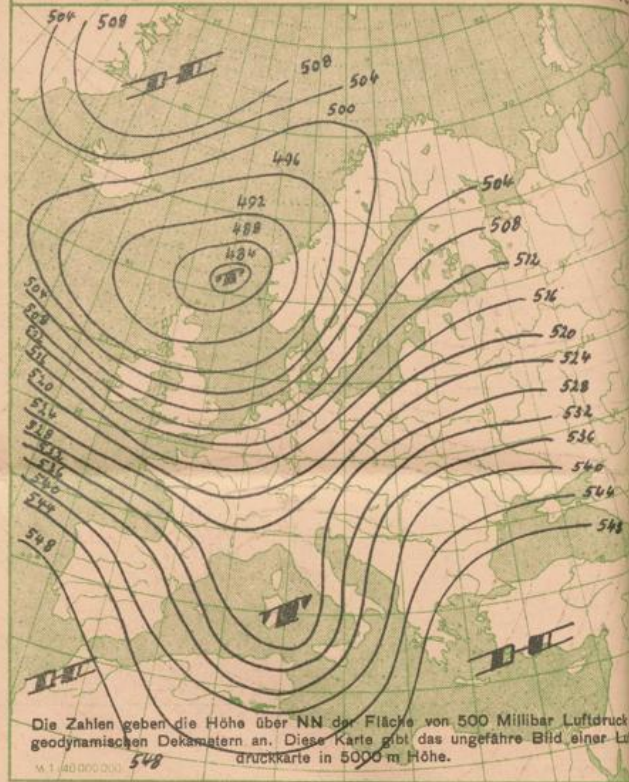 504 508
508
504
500
496
492
488
484
504
508
512
516
520
524
528
532
536
540
544
548
504
508
512
516
520
524
528
532
536
540
544
548
Die Zahlen geben die Höhe über NN der Fläche von 500 Millibar Luftdruck
geodynamischen Dekametern an. Diese Karte gibt das ungefähre Bild einer Lu
druckkarte in 5000 m Höhe.
M. 1:40 000 000
548